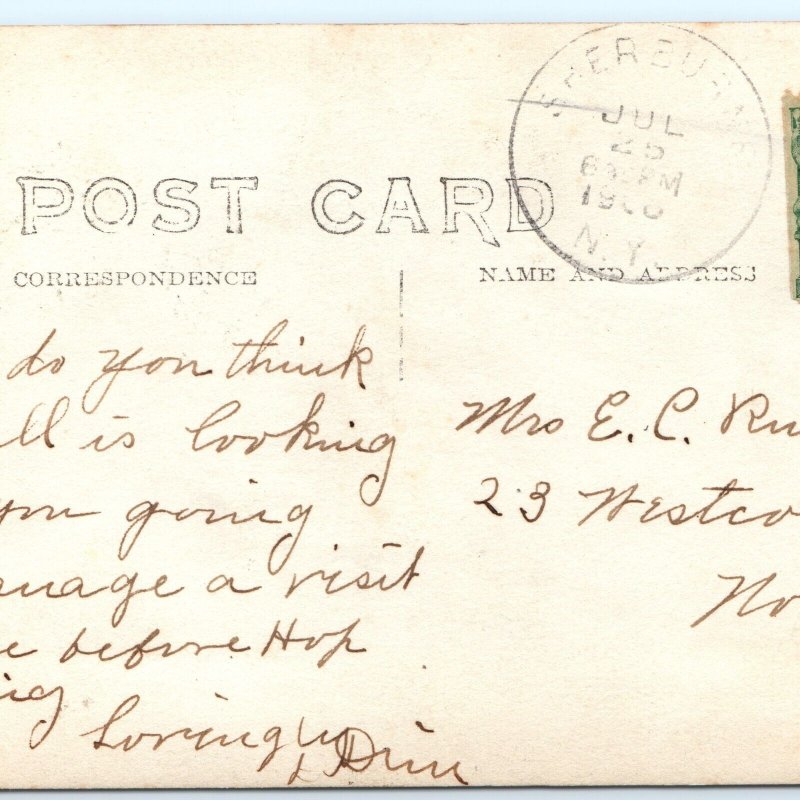 SHERBURNE
JUL
25
PM
N.Y.
POST CARD
CORRESPONDENCE
NAME AND ADDRESS
do you think
ll is looking
you going
anage a visit
e before Hop
ing
Lovingly
Mrs E. C. Ru
23 Westco
No